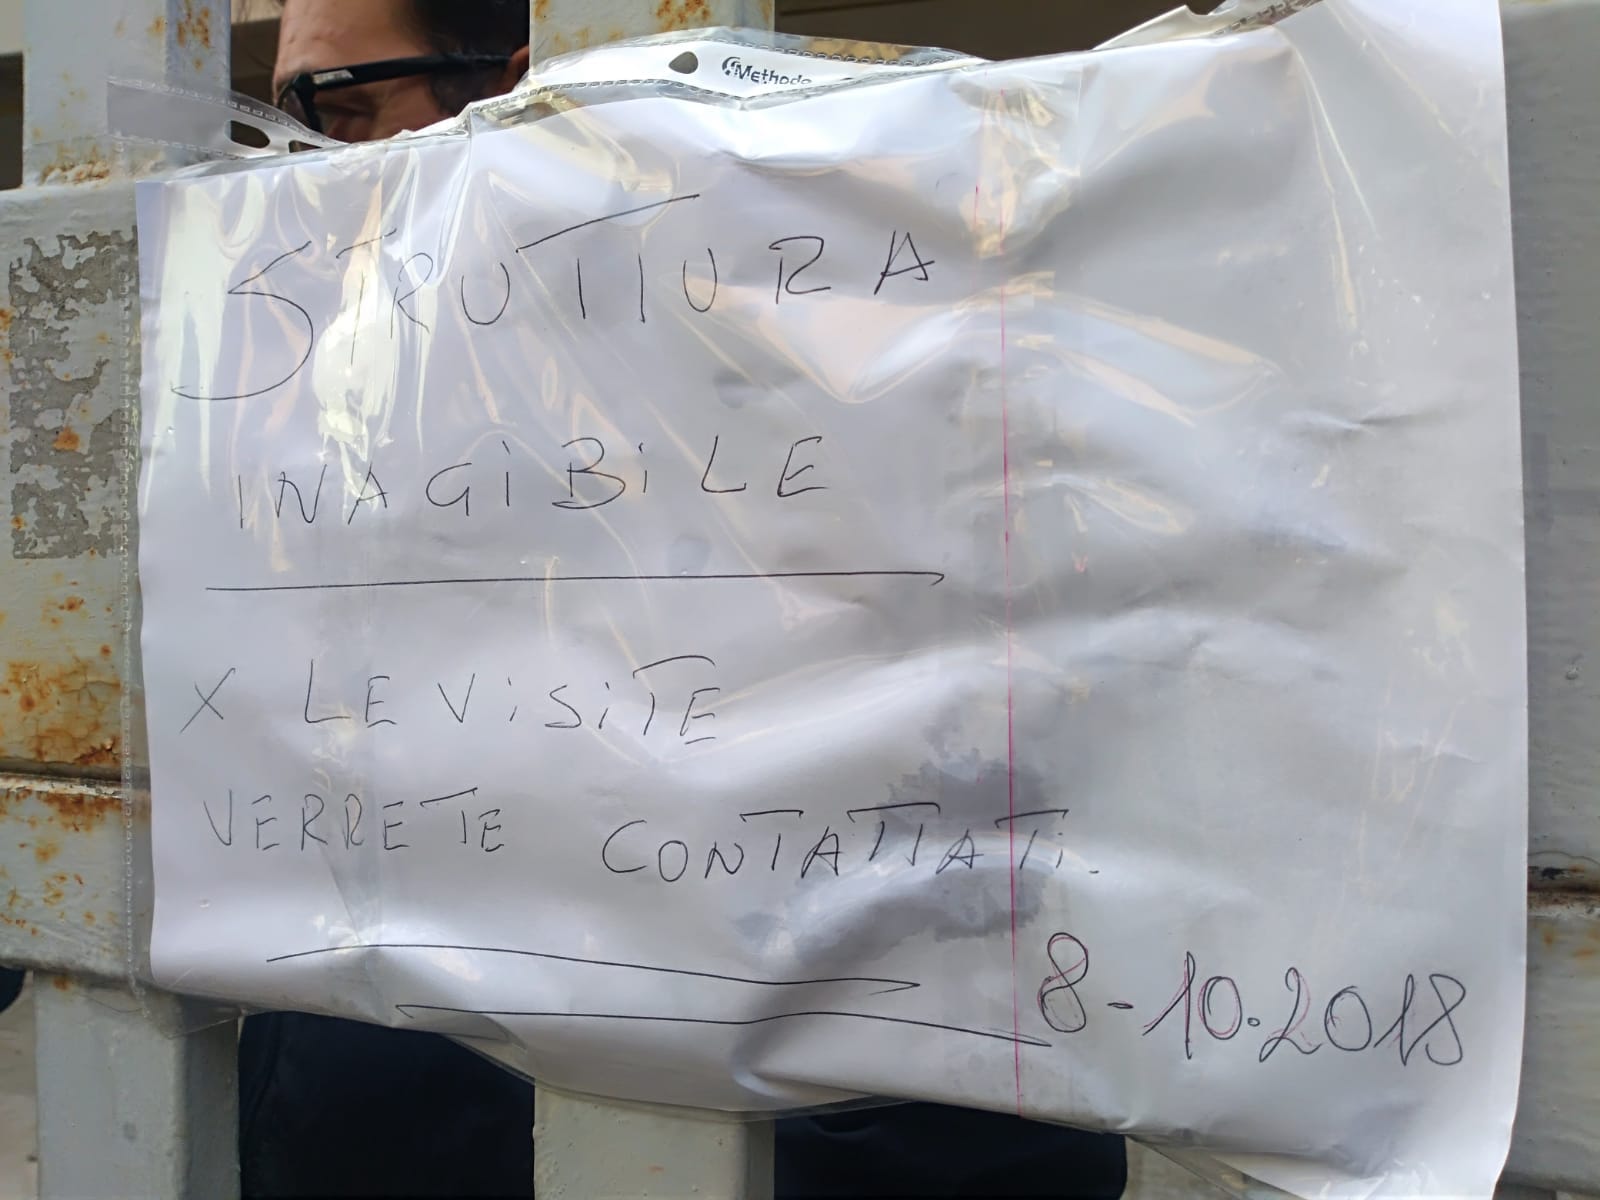 Methodo
STRUTTURA
INAGIBILE
X LE VISITE
VERRETE CONTATTATI.
8-10.2018